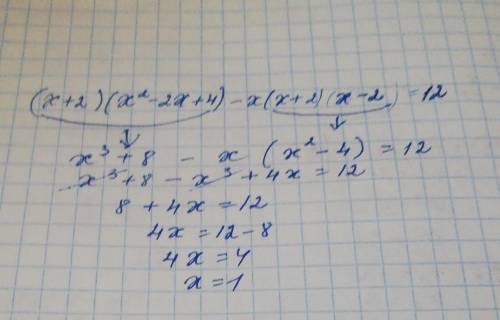 (x+2)(x²-2x+4)-x(x+2)(x-2)=12
x³+8 - x (x²-4) = 12
x³+8-x³+4x=12
8+4x=12
4x=12-8
4x=4
x=1